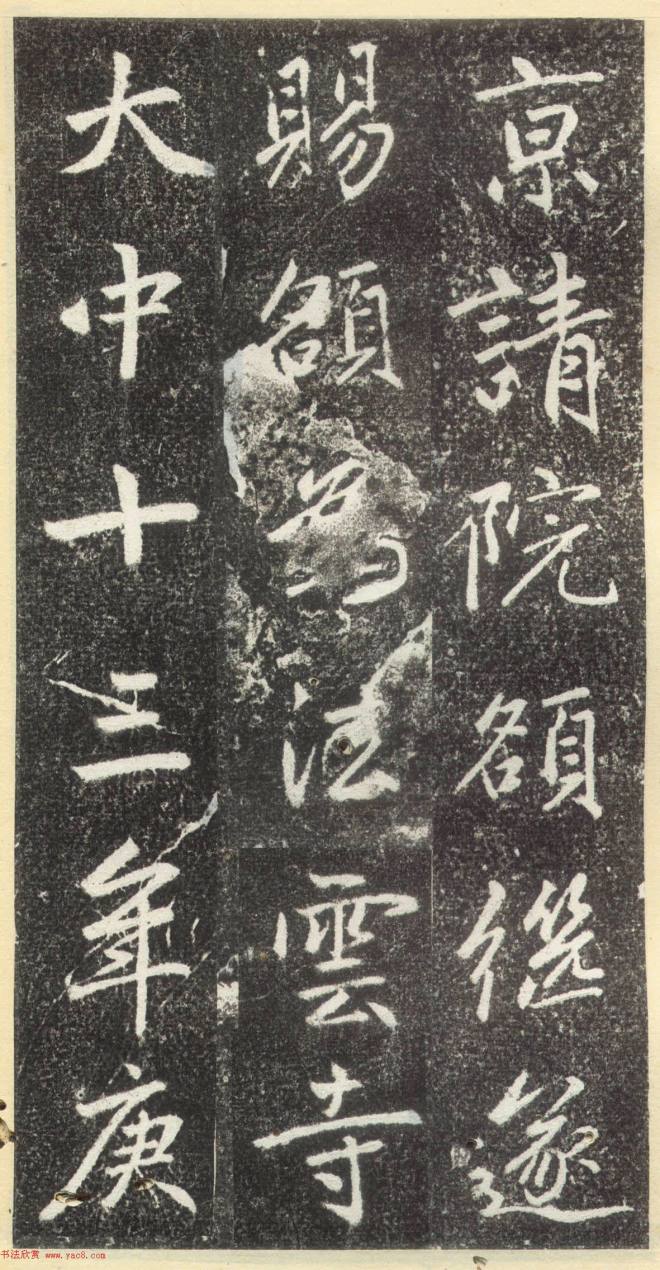 京請院額從遂
賜額為法雲寺
大中十三年庚
书法欣赏 www.yac8.com